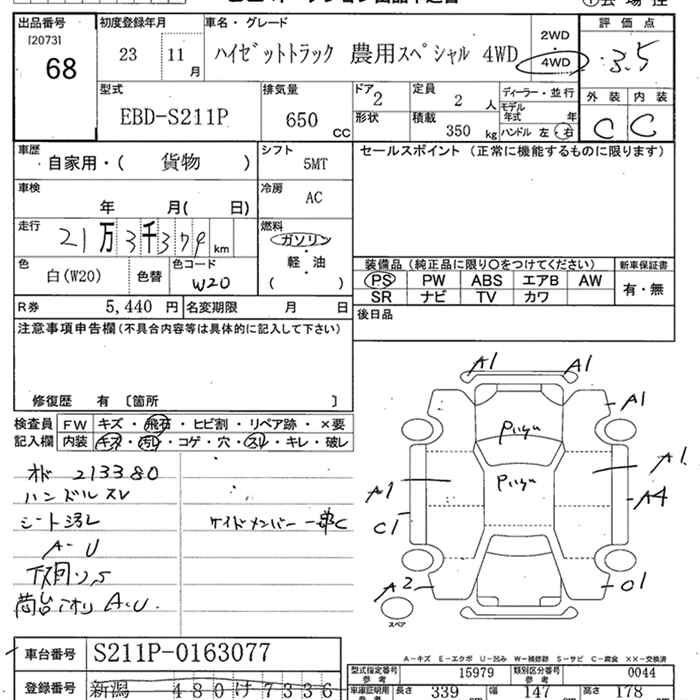 出品番号 初度登録年月 車名・グレード 2WD 評価点
[2073] 23 11月 ハイゼットトラック 農用スペシャル 4WD 4WD 3.5
68
型式 排気量 ドア 定員 ディーラー・並行 外装 内装
EBD-S211P 650 CC 2 2 人 モデル年式 年 C C
形状 積載 350 kg ハンドル 左・右
車歴 シフト セールスポイント(正常に機能するものに限ります)
自家用・( 貨物 ) 5MT
車検 冷房
年 月( 日) AC
走行 燃料
21万3千379 km ガソリン・軽・油
色 色替 色コード ( )
白(W20) W20 装備品(純正品に限り○をつけてください) 新車保証書
PS PW ABS エアB AW 有・無
R券 5,440 円 名変期限 月 日 SR ナビ TV カワ
注意事項申告欄(不具合内容等は具体的に記入して下さい) 後日品
修復歴 有 〔箇所 〕
検査員 FW キズ・飛石・ヒビ割・リペア跡・×要
記入欄 内装 キズ・汚れ・コゲ・穴・スレ・キレ・破レ
213380
ハンドルスレ
シート汚レ
A-U
A.U.
A1 A1
A1
A1 A1
A4
C1
A2 01
スペア
A-キズ E-エクボ U-凹み W-補修跡 S-サビ C-腐食 XX-交換済
車台番号 S211P-0163077
型式指定番号 参考 15979 類別区分番号 参考 0044
登録番号 新潟 480け7336
車庫証明用 参考 長さ 339 幅 147 高さ 178